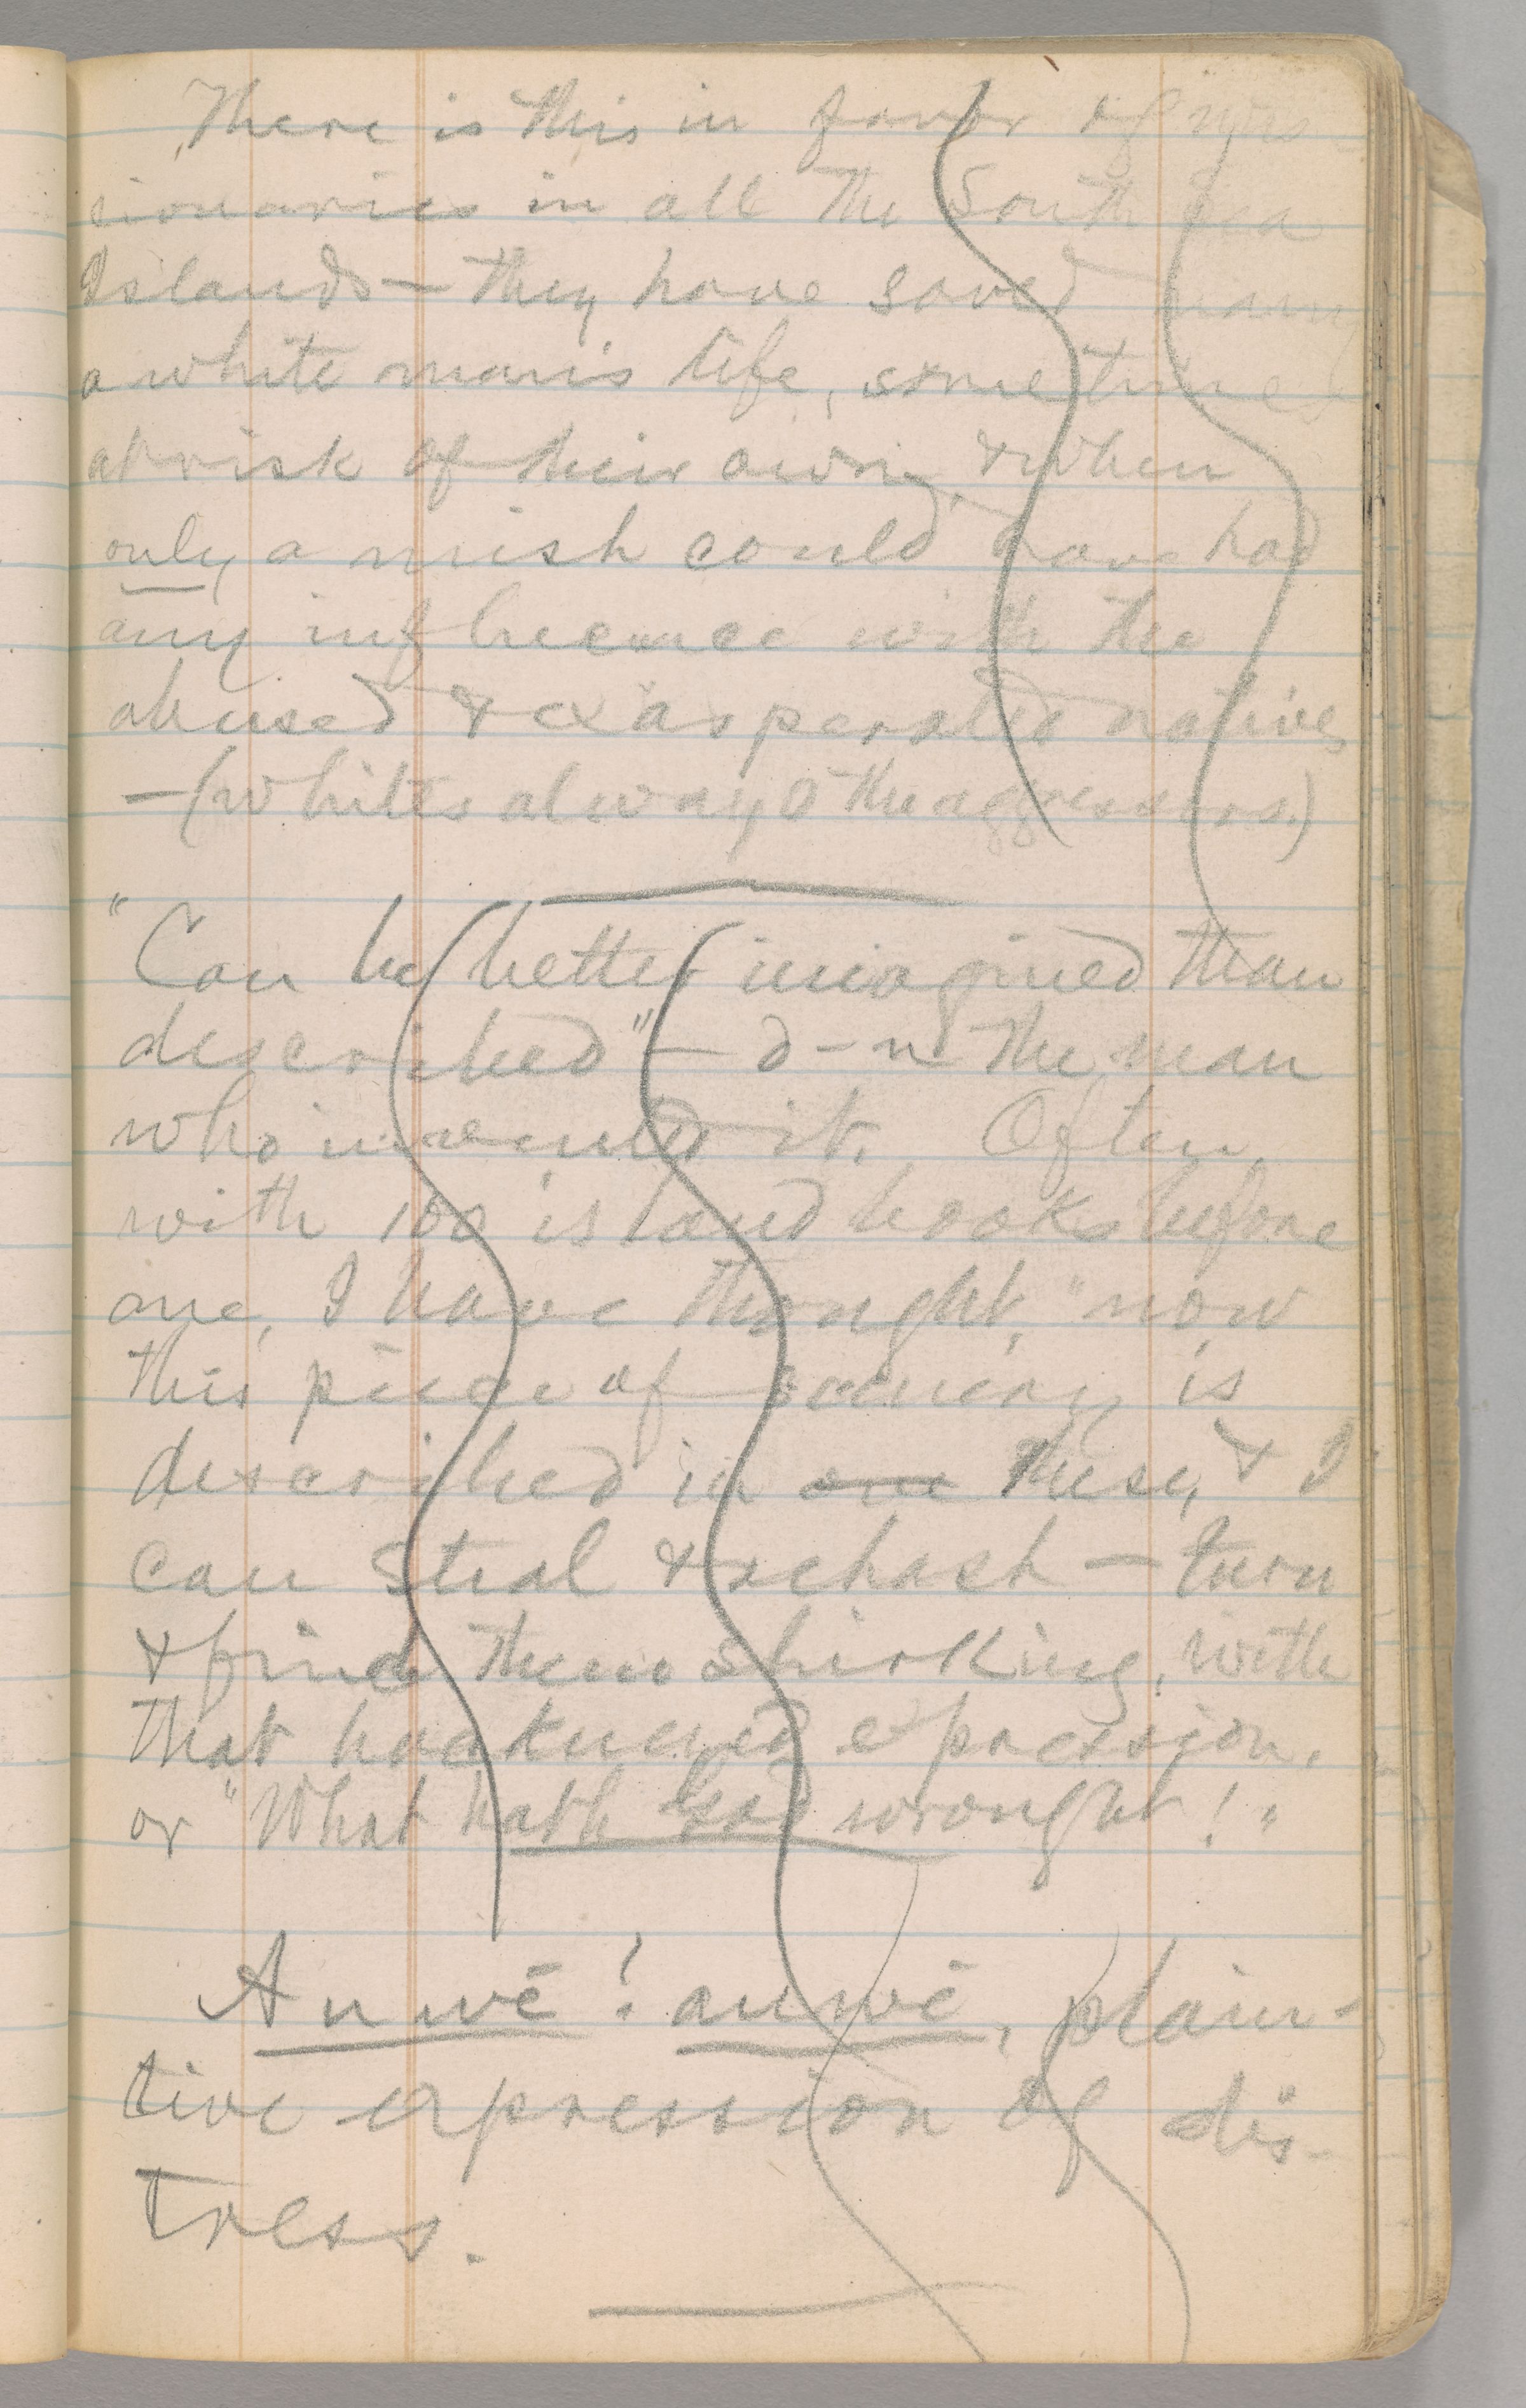 There is this in favor of mis
sionaries in all the South Sea
Islands — they have saved many
a white man's life, sometimes
at risk of their own, & when
only a mish could have had
any influence with the
abused & exasperated natives
— (whites always the aggressors.)
"Can be better imagined than
described" — d—n the man
who invented it. Often,
with 100 island books before
one, I have thought, "now
this piece of scenery is
described in one these, & I
can steal & rehash — turn
& find them shirking, with
that hackneyed expression.
or "What hath God wrought!"
Auwē! auwē, plain-
tive expression of dis-
tress.